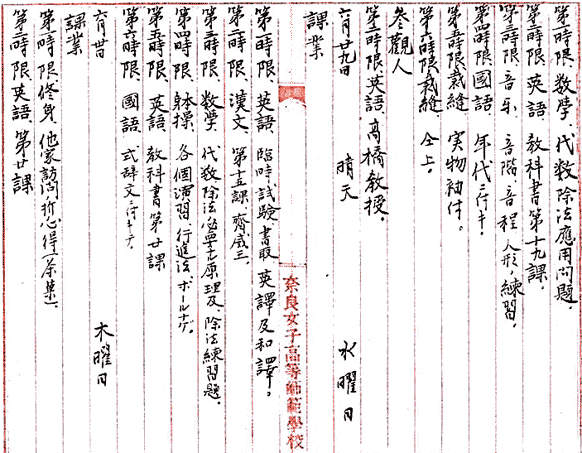 第一時限、数学、代数除法應用問題、
第二時限、英語、教科書第十九課、
第三時限、音乐、音階、音程、人形、練習、
第四時限、國語、年代ニ付キ、
第五時限、裁縫、実物袖付。
第六時限、裁縫、仝上。
参觀人
第二時限、英語、高橋敎授、
六月廿九日 晴天 水曜日
課業
奈良女子高等師範學校
第一時限、英語、臨時試験書取英譯及和譯。
第二時限、漢文、第十五課、齊威王、
第三時限、数学、代数除法必要定原理及、除法練習題、
第四時限、体操、各個演習、行進法、ボールナゲ。
第五時限、英語、教科書第廿課、
第六時限、國語、式辞文ニ付キテ、
六月卅日 木曜日
課業
第一時限、修身、他家訪問ノ折心得一茶菓、
第二時限、英語、第廿課